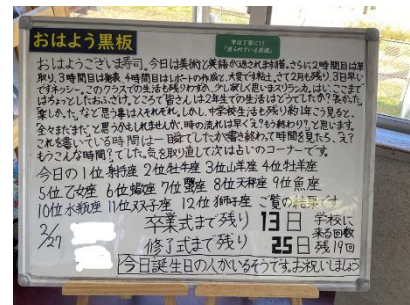 おはよう黒板
字は丁寧に!!
「見られている意識」
おはようございま寿司。今日は美術と英語が返されます獏。さらに2時間目は草
取り、3時間目は発表、4時間目はレポートの作成と、大変です粘土。さて2月も残り3日早い
ですネッシー。このクラスでの生活も残りわずか、少し寂しく思いますスリランカ。はい、ここまで
はちょっとしたおふざけ。ところで皆さんは2年生での生活はどうでしたか?長かった。
楽しかった。など思う事は人それぞれ。しかし、中学校生活も残り約1年こう見ると、
全々まだまだと思うかもしれませんが、時の流れは早く「え?もう終わり?」と思います。
これを書いている時間は一瞬でしたが書き終わって時間を見たら、え?
もうこんな時間?でした。気を取り直して次は占いのコーナーです。
今日の1位射手座 2位牡牛座 3位山羊座 4位牡羊座
5位乙女座 6位蠍座 7位蟹座 8位天秤座 9位魚座
10位水瓶座 11位双子座 12位獅子座 ご覧の結果です
2/27
卒業式まで残り 13日 学校に
来る回数
修了式まで残り 25日 残19回
今日誕生日の人がいるそうです。お祝いしましょう